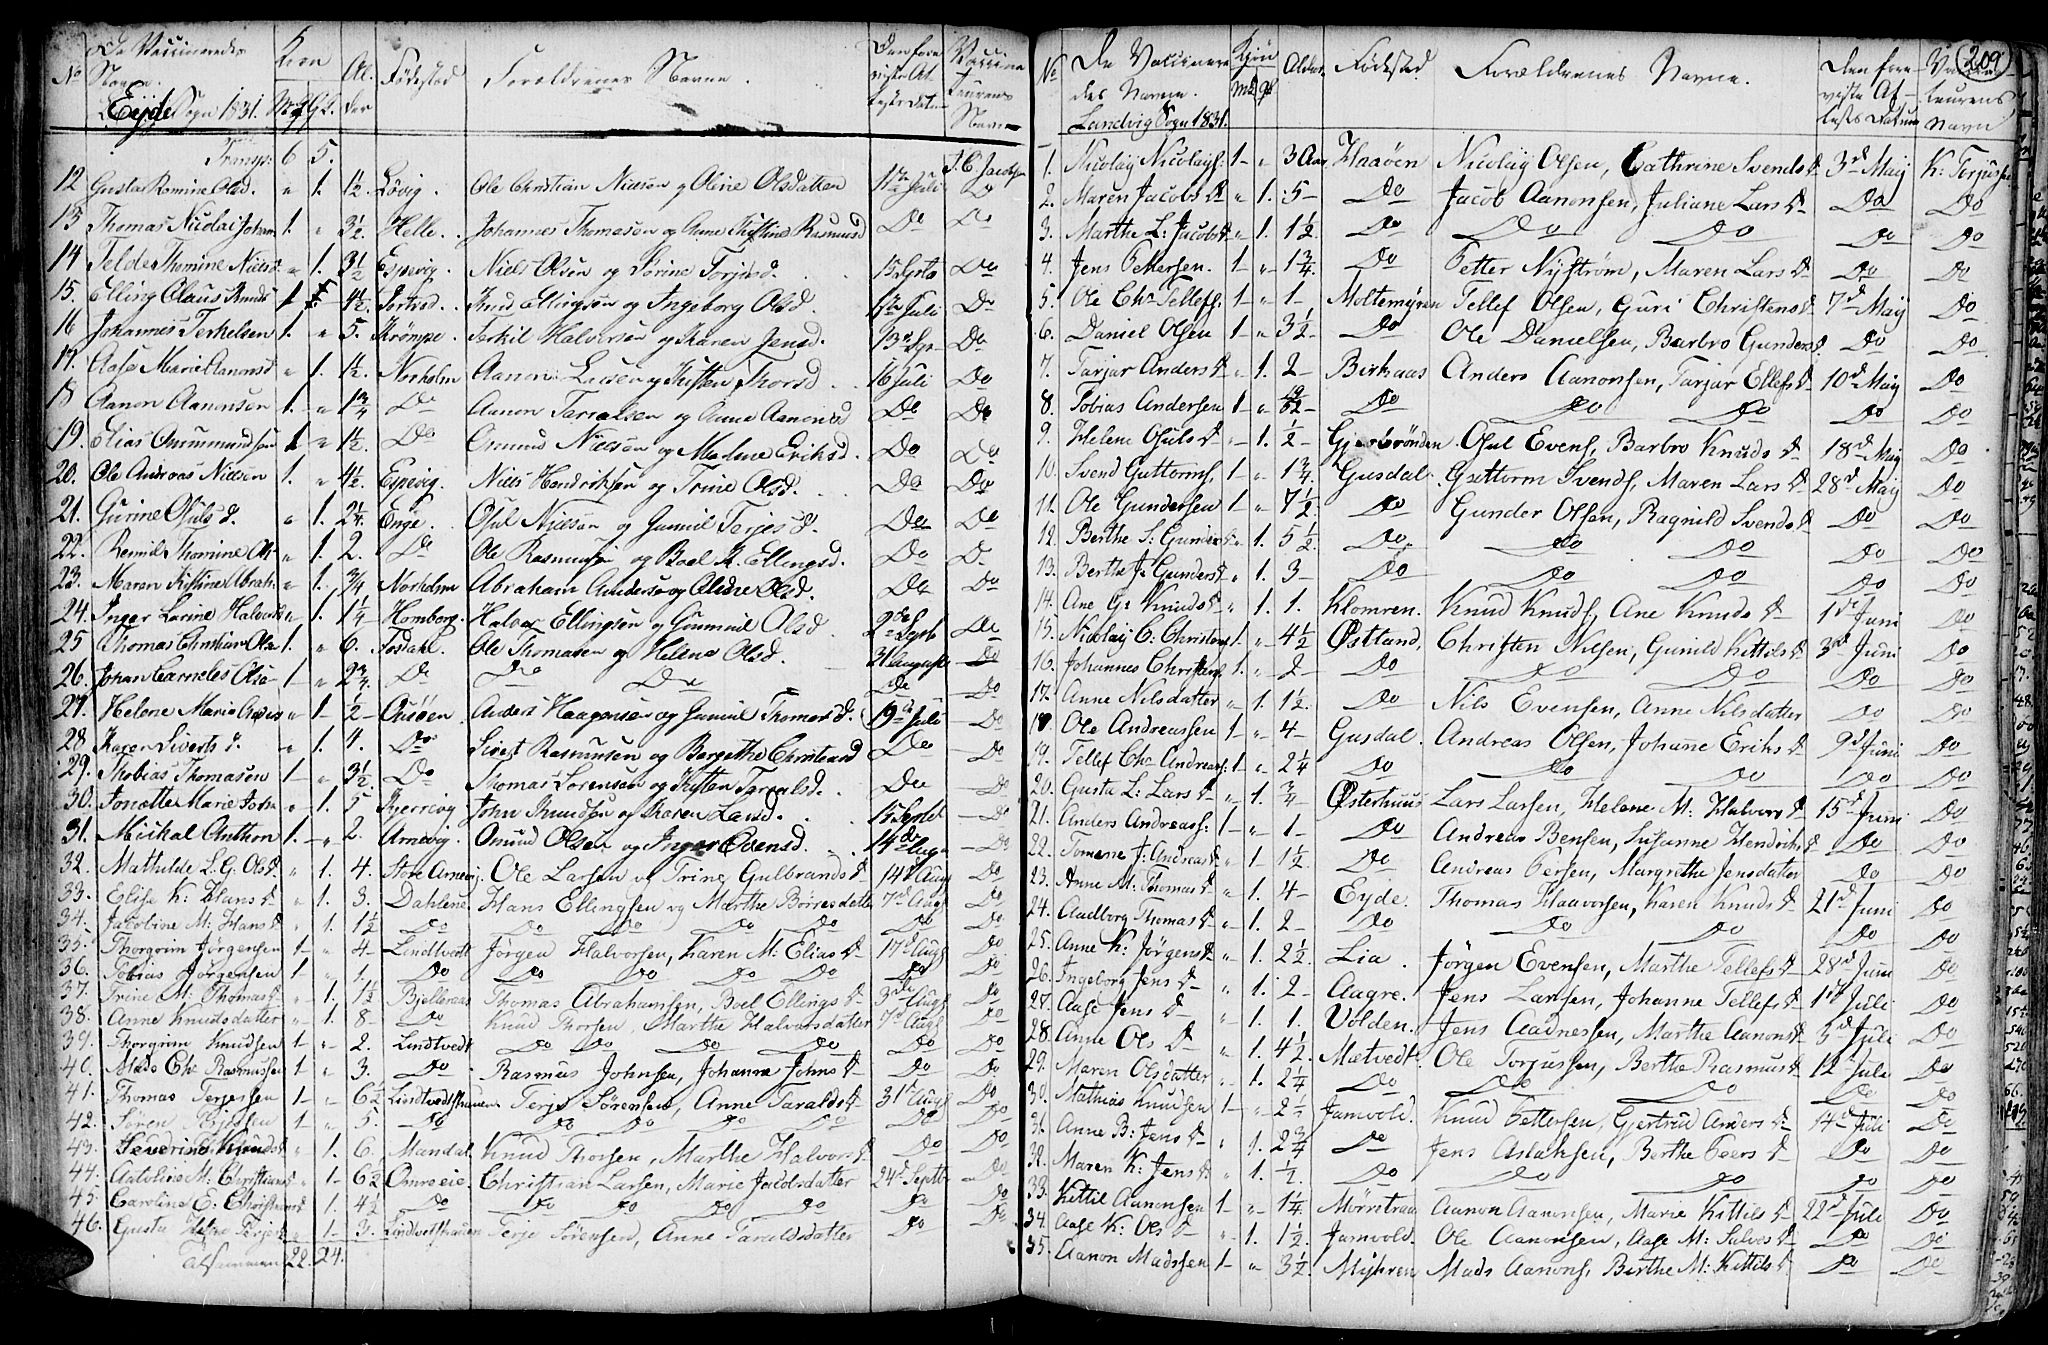 No De Vaccineredes Navne. Kiøn Al- Fødestæd Forældrenes Navne. Den fore- Vaccina-
viste At- teurens
testes Datum Navn
Eyde Sogn 1831. Mk Qk. der
Transp: 6 5. J. C. Jacobsen
12 Gusta Romine Olsd. " 1. 1½. Løvig. Ole Christian Nielsen og Oline Olsdatter 11te Juli Do
13 Thomas Nicolai Johan 1. " 3½ Helle. Johannes Thomasen og Anne Kistine Rasmusd Do Do
14 Telde Thomine Nielsd. " 1. 3½ Espevig. Niels Olsen og Sørine Torjusd. 15 Septb Do
15. Elling Claus Knuds 1 4½. Jortved. Knud Ellingsen og Ingeborg Olsd. 12te Juli Do
16 Johannes Terkelsen 1. " 5. Strømpe. Terkil Halversen og Karen Jensd. 13 Spt Do
17. Aase Marie Aanonsd " 1. 1½. Norholm Aanon Larsen og Kisten Thorsd. 16 Juli Do
18 Aanon Aanonsen 1. " 1¾ Do Aanon Tarralsen og Anne Aanonsd Do Do
19. Elias Omummundsen 1 " 1½. Do Omund Nielsen og Malene Eriksd. Do Do
20. Ole Andreas Nielsen 1. " 4½. Espevig. Niels Hendriksen og Trine Olsd. Do Do
21. Gurine Osuls d. " 1. 2¼. Enge. Osul Nielsen og Gunnil Terjes d. Do Do
22. Romil Thomine Ols " 1. 2. Do Ole Rasmusen og Boel K. Ellingsd. Do Do
23. Maren Kistine Abrah. " 1. ¾ Norholm Abraham Andersen og Oline Olsd. Do Do
24. Inger Larine Halvorsd " 1. 1¼ Homborg. Halvor Ellingsen og Gunnuil Olsd 2de Septb Do
25 Thomas Christian Ols 1. " 6. Fosdahl. Ole Thomasen og Helene Olsd. 31 August Do
26. Johan Carneles Olse 1- " 2¾. Do Do Do Do Do
27. Helene Maria Anders " 1- 2- Ousöen Anders Haagensen og Gunnil Thomas d. 19de Juli Do
28. Karen Siverts d. " 1. 4. Do Sivert Rasmusen og Bergethe Christensd Do Do
29. Thobias Thomasen 1- " 3½. Do Thomas Sörensen og Kisten Tarralsd. Do Do
30. Jonette Marie Johns " 1. 5. Kjerrevig John Knudsen og Karen Larsd. 15 Septb Do
31. Mickal Anthon 1. " 2. Arnevig. Omund Olsen og Inger Evensd. 14de Aug Do
32. Mathilde L. G. Ols D " 1. 4. Store Arnevig. Ole Larsen og Trine Gulbrands D 14d Aug Do
33. Elise K: Hans D " 1. 3. Dahlene Hans Ellingsen og Marthe Børresdatter 7d Aug Do
34. Jacobine M: Hans D " 1. 1½ Do Do Do Do Do Do Do
35. Thorgrim Jørgensen 1- " 4- Lindtvedt Jørgen Halvorsen, Karen M: Elias D 17d Aug Do
36. Tobias Jørgensen 1 " 1. Do Do Do Do Do Do Do
37. Trine M: Thomas D " 1. 1½ Bjelleraas Thomas Abrahamsen, Boel Ellings D 3die Aug Do
38. Anne Knudsdatter " 1. 8- Do Knud Thorsen, Marthe Halvorsdatter 7d Aug Do
39. Thorgrim Knudsen 1- " 2. Lindtvedt Do Do Do Do Do Do
40. Mads Chr Rasmussen 1 " 3. Do Rasmus Johnsen, Johanne Johns D Do Do
41. Thomas Terjesen 1- " 6½ Lindtvedthauen Terje Sørensen, Anne Taralds D 31t Aug Do
42. Søren Terjesen 1 " 5. Do Do Do Do Do Do Do
43. Severine Knuds D " 1. 6. Mandal. Knud Thorsen, Marthe Halvors D Do Do
44. Antoline M: Christians D " 1- 6½ Omreie. Christian Larsen, Marie Jacobsdatter 24d Septb Do
45. Caroline E. Christians D 1. 4½ Do Do Do Do Do Do Do
46. Gusta Terjes D " 1- 3. Lindtvedthauen Terje Sørensen, Anne Taraldsdatter Do Do
Alsammen 22. 24.
209
No De Vaccinere- Kjøn Alder Födestæd Forældrenes Navne. Den fore- Vaccina-
des Navne. Mk Qk viste At- teurens
Landvig Sogn 1831. tests Datum Navn
1. Nicolay Nicolays: 1- " 3 Aar Haaöen Nicolay Olsen, Cathrine Svends D 3d May K: Terjussen
2. Maren Jacobs D " 1. 5- Do Jacob Aanonsen, Juliane Lars D Do Do
3. Marthe L: Jacobs D " 1. 1½ Do Do Do Do Do
4. Jens Pettersen. 1- " 1¾ Do Petter Nyström, Maren Lars D Do Do
5. Ole Chr Tellefs: 1- " 1- Moltemyren Tellef Olsen, Guri Christens D 7d May Do
6. Daniel Olsen 1- " 3½ Do Ole Danielsen, Barbro Gunders D Do Do
7. Tarjar Anders D " 1. 2- Birkaas Anders Aanonsen, Tarjar Ellefs D 10d May Do
8. Tobias Andersen 1- " Do Do Do Do Do
9. Helene Osuls D " 1. ½- Gjesbrönden Osul Evens, Barbro Knuds D 18d May Do
10. Svend Guttorms, 1- " 1¾. Gusdal. Guttorm Svends, Maren Lars D 28d May Do
11. Ole Gundersen 1- " 7½ Do Gunder Olsen, Ragnild Svends D Do Do
12. Berthe S: Gunders D " 1. 5½. Do Do Do Do Do
13. Berthe J: Gunders D " 1. 3- Do Do Do Do Do
14. Ane G: Knuds D " 1. 1. Klomren. Knud Knuds, Ane Knuds D 1de Juni Do
15. Nicolay C: Christens 1- " 4½ Østland, Christen Nilsen, Gunild Kittils D 3d Juni Do
16. Johannes Christens, 1. " 2- Do Do Do Do Do
17. Anne Nilsdatter " 1. 1½. Do Nils Evensen, Anne Nilsdatter Do Do
18. Ole Andreassen 1- " 4- Gusdal. Andreas Olsen, Johane Eriks D 9d Juni Do
19. Tellef Chr Andreas: 1- " 2¼ Do Do Do Do Do
20. Gusta L: Lars D " 1. ¾- Østerhuus Lars Larsen, Helene M: Halvors D 15d Juni Do
21. Anders Andreass: 1- " 1- Do Andreas Bensen, Susanne Hendriks D Do Do
22. Tomene J: Andreas D " 1- 1½ Do Andreas Persen, Margrethe Jensdatter Do Do
23. Anne M: Thomas D " 1. 4- Eyde. Thomas Haavorsen, Karen Knuds D 21d Juni Do
24. Aadborg Thomas D " 1. 2- Do Do Do Do Do
25. Anne K: Jørgens D " 1. 2½. Lia. Jörgen Evensen, Marthe Tellefs D 28d Juni Do
26. Ingeborg Jens D " 1. 2- Aagre. Jens Larssen, Johanne Tellefs D 1de Juli Do
27. Aase Jens D " 1. 1. Volden. Jens Aadnessen, Marthe Aanons D 5d Juli Do
28. Anne Ols D " 1. 4½. Mætvedt. Ole Torjussen, Berthe Rasmus D 12d Juli Do
29. Maren Olsdatter " 1. 2¼ Do Do Do Do Do
30. Mathias Knudsen 1- " 2½ Jamvold. Knud Pettersen, Gjertrud Anders D 14d Juli Do
31. Anne B: Jens D " 1. 2¾ Do Jens Aslaksen, Berthe Peers D Do Do
32. Maren K: Jens D " 1- ½. Do Do Do Do Do
33. Kittil Aanonsen 1- " 1¼ Mørntraa Aanon Aanonsen, Marie Kittils D 22d Juli Do
34. Aase K: Ols D " 1. 1½ Jamvold. Ole Aanonsen, Aase M: Salves D Do Do
35. Aanon Madssen 1- " 3½. Myhren Mads Aanons, Birthe M: Kittils D Do Do